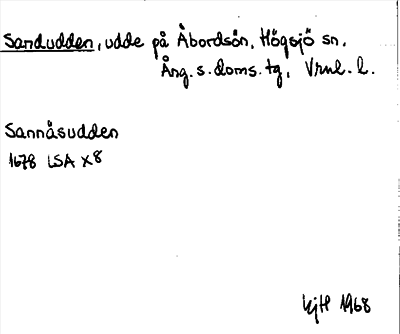 Sandudden, udde på Åbordsön, Högsjö sn,
Ång. s. doms. tg, Vrnl. l.
Sannåsudden
1678 LSA X8
KjH 1968